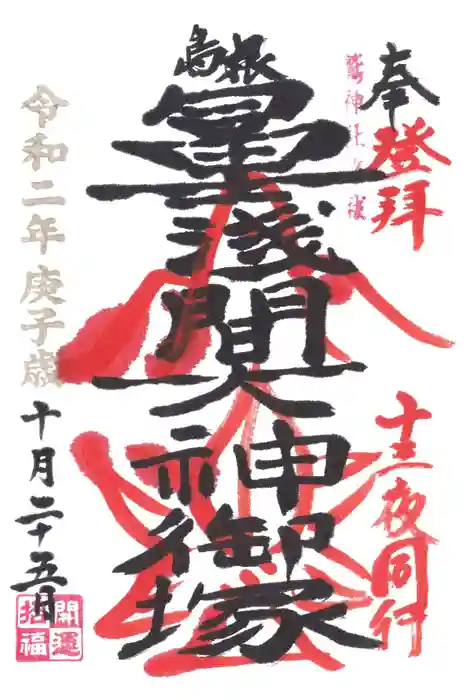 奉
登拜
十三夜同行
鷲神社
島根
富士浅間大神御塚
令和二年庚子歳
十月二十五日
開運
招福